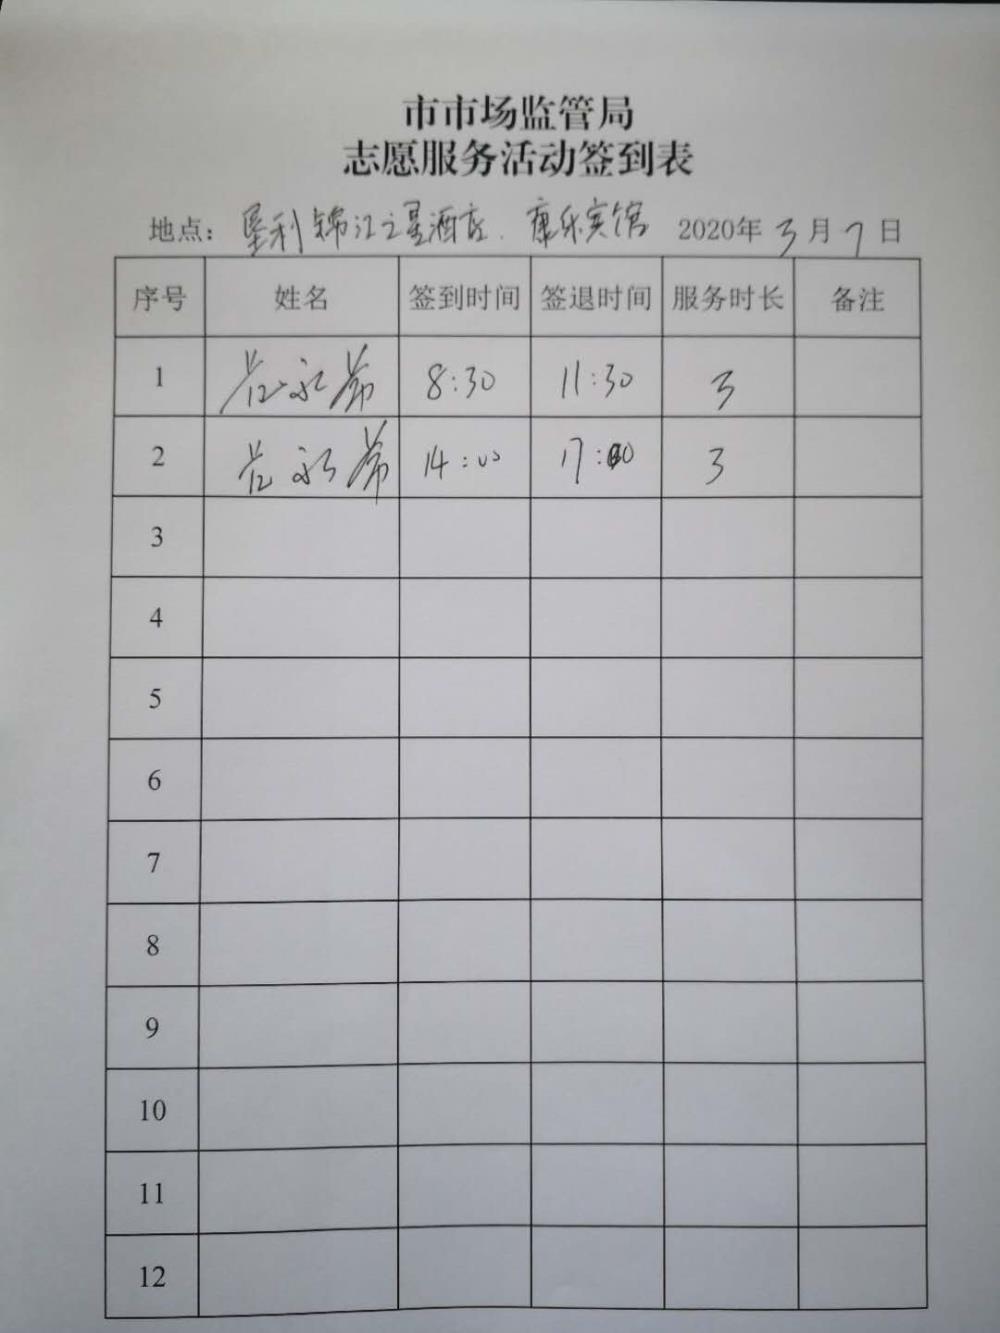 市市场监管局
志愿服务活动签到表
地点: 垦利锦江之星酒店、康乐宾馆 2020年3月7日
序号 姓名 签到时间 签退时间 服务时长 备注
1 8:30 11:30 3
2 14:00 17:00 3
3
4
5
6
7
8
9
10
11
12